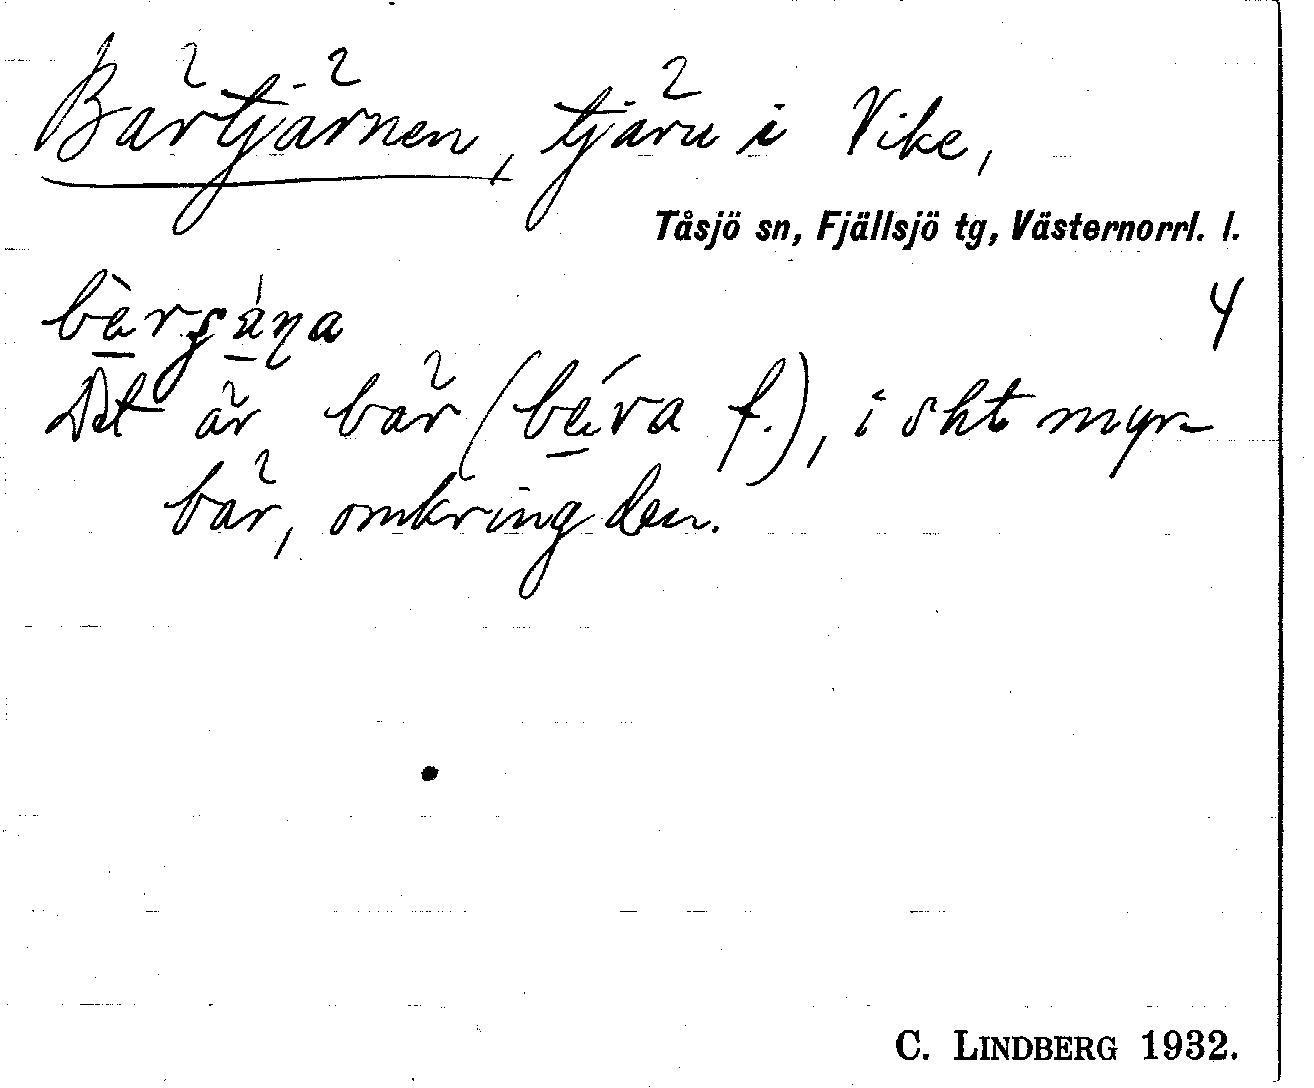 Bärtjärnen, tjärn i Vike,
Tåsjö sn, Fjällsjö tg, Västernorrl. l.
4
Det är bär (bera f.), i sht myr-
bär, omkring den.
C. LINDBERG 1932.